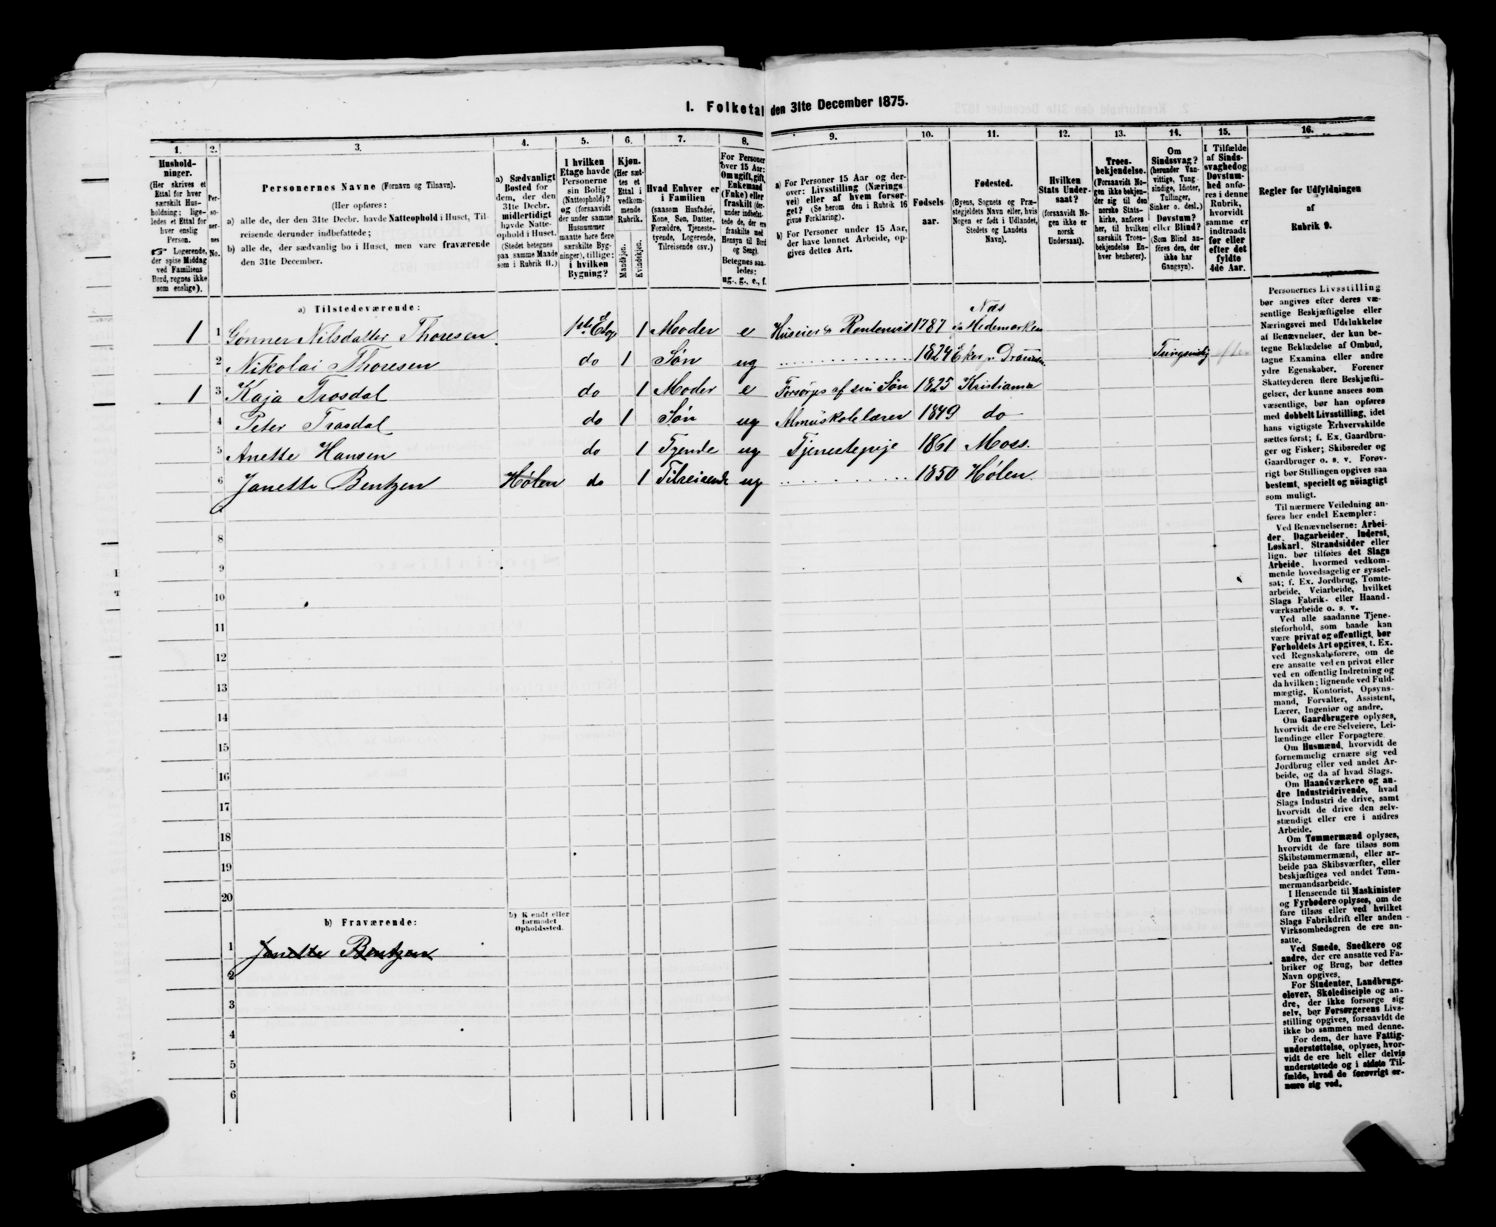 I. Folketal den 31te December 1875.
1. 2. 3. 4. 5. 6. 7. 8. 9. 10. 11. 12. 13. 14. 15. 16.
Husholdninger.
(Her skrives et
Ettal for hver
særskilt Husholdning; ligeledes
et Ettal for
hver enslig
Person.
☞ Logerende,
der spise Middag
ved Familiens
Bord, regnes ikke
som enslige).
Personernes No.
Personernes Navne (Fornavn og Tilnavn).
(Her opføres:
a) alle de, der den 31te Decbr. havde Natteophold i Huset, Tilreisende derunder indbefattede;
b) alle de, der sædvanlig bo i Huset, men vare fraværende
den 31te December.
a) Sædvanligt
Bosted for
dem, der den
31te Decbr.
midlertidigt
havde Natteophold
i Huset.
(Stedet betegnes
paa samme Maade
som i Rubrik 11.)
I hvilken
Etage havde
Personerne
sin Bolig
(Natteophold)?
og (forsaavidt
der under samme
Husnummer
maatte høre flere
særskilte Bygninger), tillige:
i hvilken
Bygning?
Kjøn.
(Her sættes et
Ettal i
vedkommende
Rubrik.
Mandkjøn.
Kvindekjøn.
Hvad Enhver er
i Familien
(saasom Husfader,
Kone, Søn, Datter,
Forældre, Tjenestetyende, Logerende,
Tilreisende osv.)
For Personer
over 15 Aar:
Om ugift, gift,
Enkemand
(Enke) eller
fraskilt
Betegnes saaledes:
ug., g., e., f.
a) For Personer 15 Aar og derover: Livsstilling (Næringsvei) eller af hvem forsørget? (Se herom den i Rubrik 16
givne Forklaring).
b) For Personer under 15 Aar,
der have lønnet Arbeide, opgives dettes Art.
Fødselsaar.
Fødested.
(Byens, Sognets og Præstegjeldets Navn eller, hvis
Nogen er født i Udlandet,
Stedets og Landets
Navn).
Hvilken
Stats Undersaat?
(forsaavidt Nogen ikke er
norsk
Undersaat).
Troesbekjendelse.
(Forsaavidt Nogen ikke bekjender sig til den
norske Statskirke, anføres
her, til hvilken
særskilt Troesbekjendelse Enhver henhører).
Om
Sindssvag?
(herunder Vanvittige, Tungsindige, Idioter,
Tullinger,
Sinker o. desl.)
Døvstum?
eller Blind?
(Som Blind anføres den, der
ikke har
Gangsyn).
I Tilfælde
af Sindssvaghed og
Døvstumhed anføres i denne
Rubrik,
hvorvidt
samme er
indtraadt
før eller
efter det
fyldte
4de Aar.
Regler for Udfyldningen
af
Rubrik 9.
a) Tilstedeværende:
1 1 Gønner Nilsdatter Thoresen 1ste Etag 1 Moder e Huseier & 1787 Næs paa Hedemarken
2 Nikolai Thoresen do 1 Søn ug 1824 Eker v. Drammen Tungsindig efter
1 3 Kaja Trosdal do 1 Moder e Forsørges af sin Søn 1825 Kristiania
4 Peter Trosdal do 1 Søn ug Almuskolelærer 1849 do
5 Anette Hansen do 1 Tyende ug Tjenestepige 1861 Moss.
6 Janette Bentzen Hølen do 1 Tilreisende ug 1850 Hølen
8
9
10
11
12
13
14
15
16
17
18
19
20
b) Fraværende:
b) Kjendt eller
formodet
Opholdssted.
1 Janette Bentzen
2
3
4
5
6
Personernes Livsstilling
bør angives efter deres væsentlige Beskjæftigelse eller
Næringsvei med Udelukkelse
af Benævnelser, der kun betegne Beklædelse af Ombud,
tagne Examina eller andre
ydre Egenskaber. Forener
Skatteyderen flere Beskjæftigelser, der kunne ansees som
væsentlige, bør han opføres
med dobbelt Livsstilling, idet
hans vigtigste Erhvervskilde
sættes først; f. Ex. Gaardbruger og Fisker; Skibsreder og
Gaardbruger o. s. v. Forøvrigt bør Stillingen opgives saa
bestemt, specielt og nøiagtigt
som muligt.
Til nærmere Veiledning anføres her endel Exempler:
Ved Benævnelserne: Arbeider, Dagarbeider, Inderst,
Løskarl, Strandsidder eller
lign. bør tilføies det Slags
Arbeide, hvormed vedkommende hovedsagelig er sysselsat; f. Ex. Jordbrug, Tomtearbeide, Veiarbeide, hvilket
Slags Fabrik- eller Haandværksarbeide o. s. v.
Ved alle saadanne Tjenesteforhold, som baade kan
være privat og offentligt, bør
Forholdets Art opgives, t. Ex.
ved Regnskabsførere, om de
ere ansatte ved en privat eller
ved en offentlig Indretning og
da hvilken; lignende ved Fuldmægtig, Kontorist, Opsynsmand, Forvalter, Assistent,
Lærer, Ingeniør og andre.
Om Gaardbrugere oplyses,
hvorvidt de ere Selveiere, Leilændinge eller Forpagtere.
Om Husmænd, hvorvidt de
fornemmelig ernære sig ved
Jordbrug eller ved andet Arbeide, og da af hvad Slags.
Om Haandværkere og andre Industridrivende, hvad
Slags Industri de drive, samt
hvorvidt de drive den selvstændigt eller ere i andres
Arbeide.
Om Tømmermænd oplyses,
hvorvidt de fare tilsøs som
Skibstømmermænd, eller arbeide paa Skibsværfter, eller
beskjæftiges ved andet Tømmermandsarbeide.
I Henseende til Maskinister
og Fyrbødere oplyses, om de
fare tilsøs eller ved hvilket
Slags Fabrikdrift eller anden
Virksomhedsgren de ere ansatte.
Ved Smede, Snedkere og
andre, der ere ansatte ved Fabriker og Brug, bør dettes
Navn opgives.
For Studenter, Landbrugselever, Skoledisciple og andre, der ikke forsørge sig
selv, bør Forsørgerens Livsstilling opgives, forsaavidt de
ikke bo sammen med denne.
For dem, der have Fattigunderstøttelse, oplyses, hvorvidt de ere helt eller delvis
understøttede og i sidste Tilfælde, hvad de forøvrigt ernære sig ved.